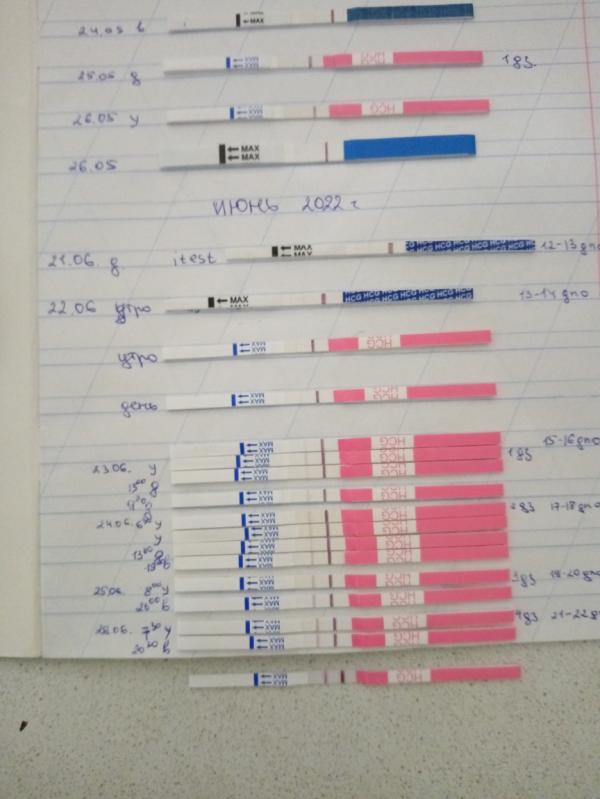 24.05 в
MAX
25.05 д MAX MAX HCG 1 дз
26.05 у MAX MAX HCG
26.05 MAX MAX
ИЮНЬ 2022 г
21.06. д. itest MAX MAX HCG HCG HCG HCG HCG HCG 12-13 дпо
22.06 утро MAX MAX HCG HCG HCG HCG HCG HCG 13-14 дпо
утро MAX MAX HCG
день MAX MAX HCG
MAX MAX HCG 15-16 дпо
23.06. у MAX MAX 1 дз
MAX MAX HCG
MAX MAX HCG 17-18 дпо
24.06. у MAX MAX HCG
у MAX MAX HCG
MAX MAX HCG
25.06. 8 00 у MAX MAX HCG 3 дз 19-20 дпо
20 00 в MAX MAX HCG
26.06. 7 30 у MAX MAX HCG 4 дз 21-22 дпо
в MAX MAX HCG
MAX MAX HCG